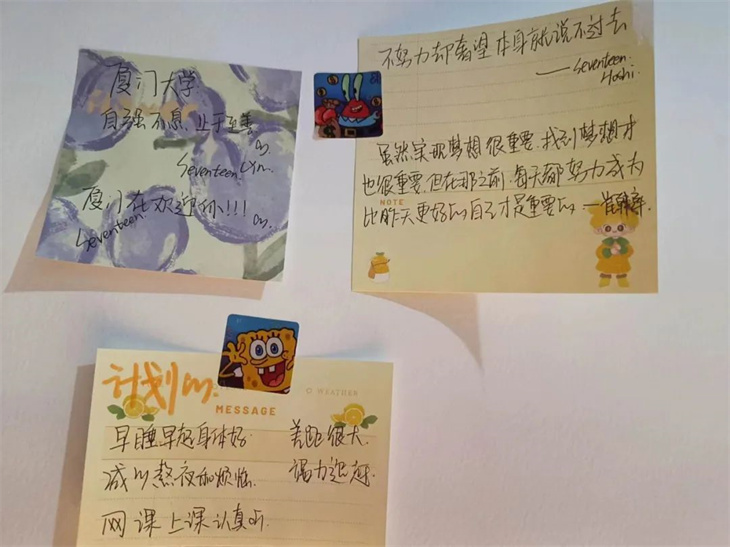 厦门大学
自强不息,止于至善
Seventeen
厦门在欢迎你!!!
Seventeen
不努力却奢望本身就说不过去
——Seventeen:
Hoshi.
虽然实现梦想很重要,找到梦想才
也很重要,但在那之前,每天都努力成为
比昨天更好的自己才是重要的
NOTE
计划
MESSAGE
WEATHER
早睡早起身体好 差距很大
减少熬夜和烦恼 竭力追赶
网课上课认真听